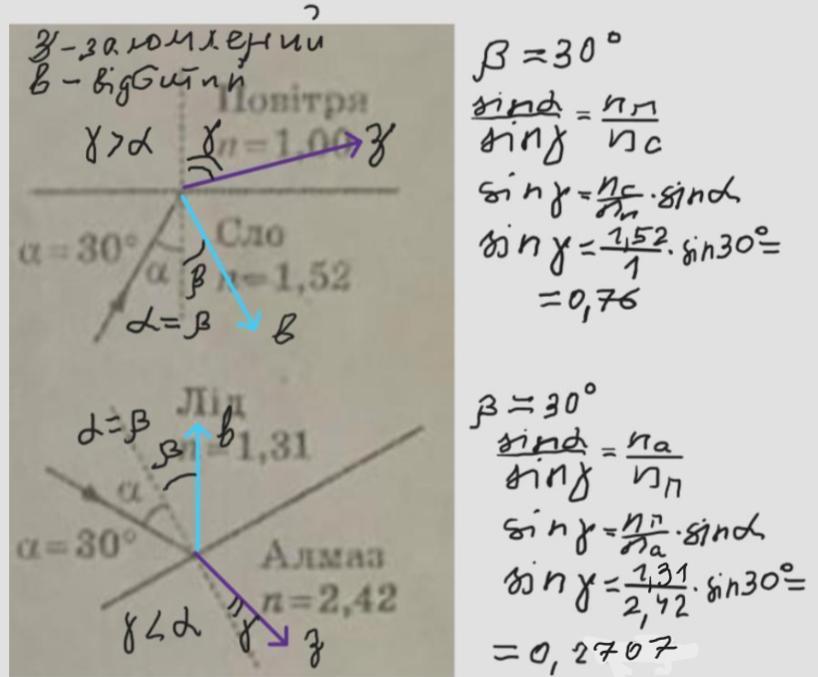 З - заломлений
в - відбитий
Повітря
γ > α
γ
n = 1,00
з
α = 30°
α
β
Сло
n = 1,52
α = β
в
β = 30°
sinα/sinγ = nп/nс
sinγ = nс/nп · sinα
sinγ = 1,52/1 · sin30° =
= 0,76
Лід
n = 1,31
α = β
β
в
α
α = 30°
Алмаз
n = 2,42
γ < α
γ
з
β = 30°
sinα/sinγ = nа/nп
sinγ = nп/nа · sinα
sinγ = 1,31/2,42 · sin30° =
= 0,2707